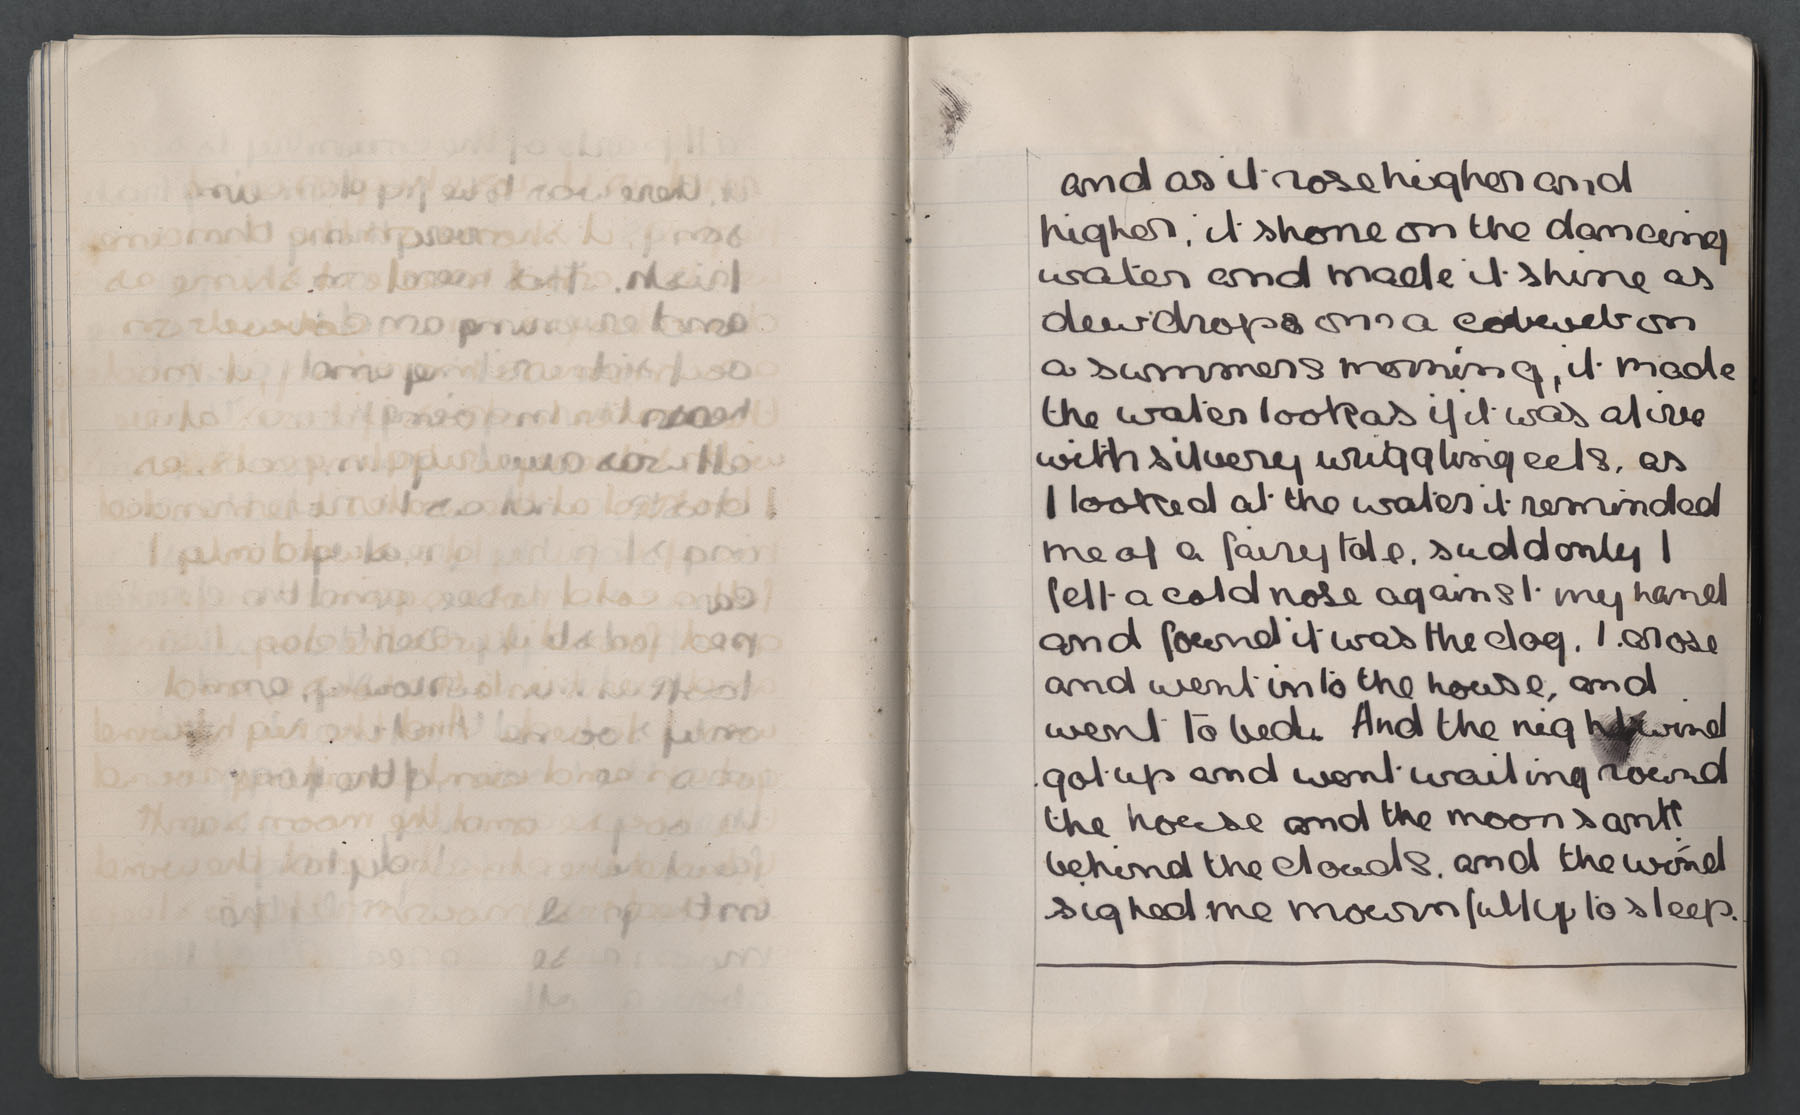 and as it rose higher and
higher, it shone on the dancing
water and made it shine as
dewdrops on a cobweb on
a summers morning, it made
the water look as if it was alive
with silvery wriggling eels, as
I looked at the water it reminded
me of a fairy tale, suddonly I
felt a cold nose against my hand
and found it was the dog. I arose
and went into the house, and
went to bed. And the night wind
got up and went wailing round
the house and the moon sank
behind the clouds, and the wind
sighed me mournfully to sleep.